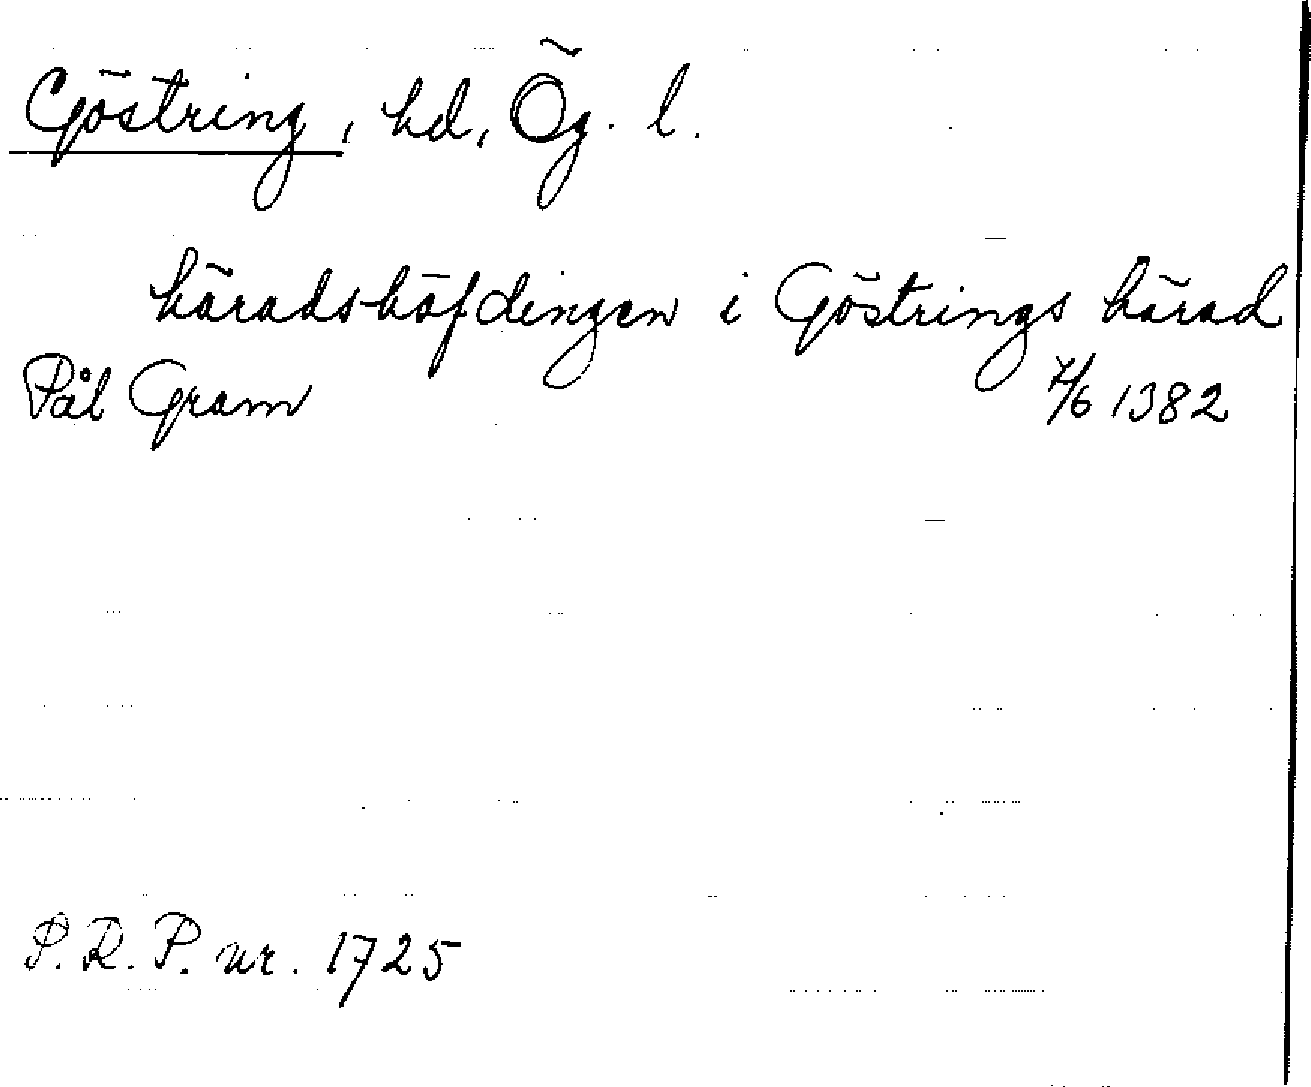 Göstring, hd, Ög. l.
häradshöfdingen i Göstrings härad
Pål Gram 7/6 1382
P.R.P. nr. 1725